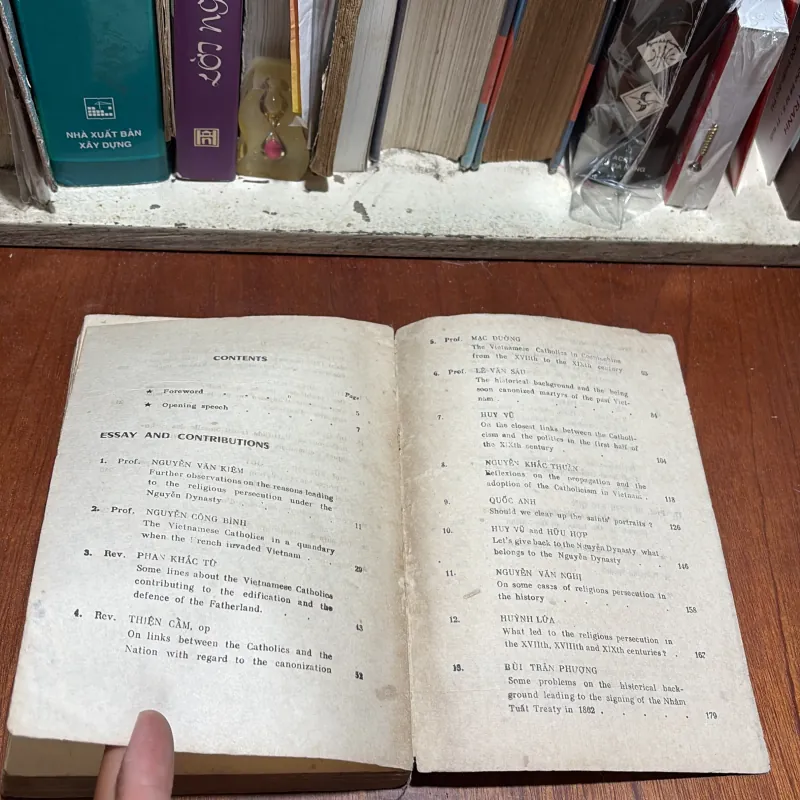 NHÀ XUẤT BẢN
XÂY DỰNG
LỜI NG
CONTENTS
Page
★ Foreword . . . . 5
★ Opening speech . . . . 7
ESSAY AND CONTRIBUTIONS
1. Prof. NGUYỄN VĂN KIỆM
Further observations on the reasons leading
to the religious persecution under the
Nguyễn Dynasty . . . . 11
2. Prof. NGUYỄN CÔNG BÌNH
The Vietnamese Catholics in a quandary
when the French invaded Vietnam . . . 29
3. Rev. PHAN KHẮC TỪ
Some lines about the Vietnamese Catholics
contributing to the edification and the
defence of the Fatherland. . . . 43
4. Rev. THIỆN CẨM, op
On links between the Catholics and the
Nation with regard to the canonization 52
5. Prof. MẠC ĐƯỜNG
The Vietnamese Catholics in Cochinchina
from the XVIIth to the XIxth century 65
6. Prof. LÊ VĂN SÁU
The historical background and the being
soon canonized martyrs of the past Viet-
nam . . . . 84
7. HUY VŨ
On the closest links between the Catholi-
cism and the politics in the first half of
the XIXth century . . . 104
8. NGUYỄN KHẮC THUẦN
Reflexions on the propagation and the
adoption of the Catholicism in Vietnam . 118
9. QUỐC ANH
Should we clear up the saints' portraits ? 126
10. HUY VŨ and HỮU HỢP
Let's give back to the Nguyễn Dynasty what
belongs to the Nguyễn Dynasty . . . 146
11. NGUYỄN VĂN NGHỊ
On some cases of religions persecution in
the history . . . . . 158
12. HUỲNH LỨA
What led to the religious persecution in
the XVIIth, XVIIIth and XIXth centuries ? . 162
13. BÙI TRÂN PHƯỢNG
Some problems on the historical back-
ground leading to the signing of the Nhâm
Tuất Treaty in 1862 . . . . . 179